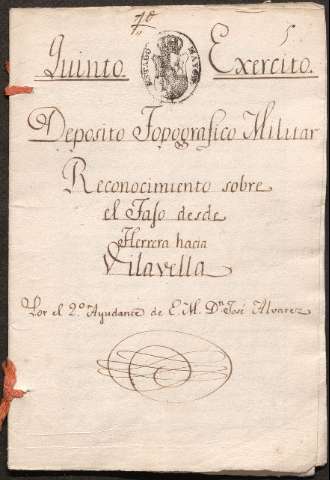 7º
5
Quinto. Exercito.
ESTADO MAYOR
Deposito Topografico Militar
Reconocimiento sobre
el Tajo desde
Herrera hacia
Vilavella
Por el 2.º Ayudante de E. M. Dn José Alvarez